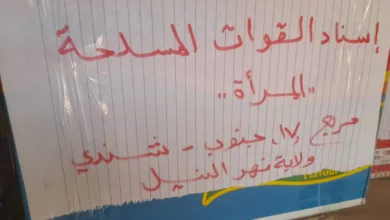 إسناد القوات المسلحة
"المرأة"
مربع "١٧" جنوب - شندي
ولاية نهر النيل